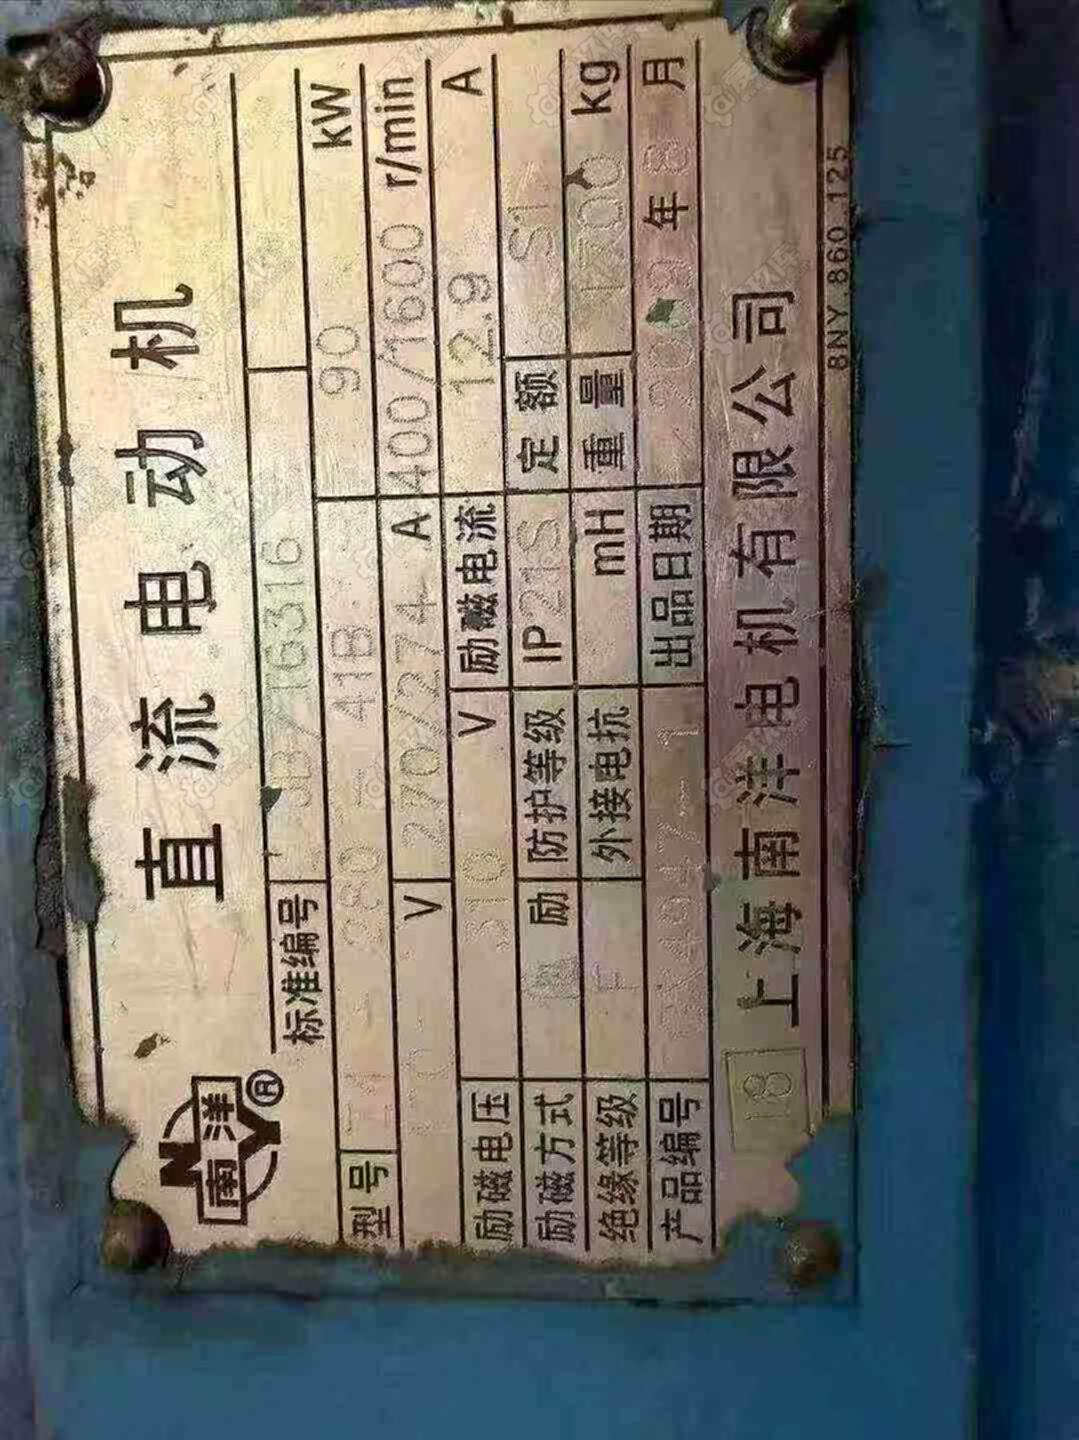 直流电动机
N 南洋 Y ®
标准编号 JB/TG316
型号 Z4-280-41B 90 kW
V 270/274 A 400/1600 r/min
励磁电压 310 V 励磁电流 12.9 A
励磁方式 励 防护等级 IP21S 定额 S1
绝缘等级 F 外接电抗 mH 重量 1700 kg
产品编号 出品日期 年 月
18 上海南洋电机有限公司
8NY.860.125